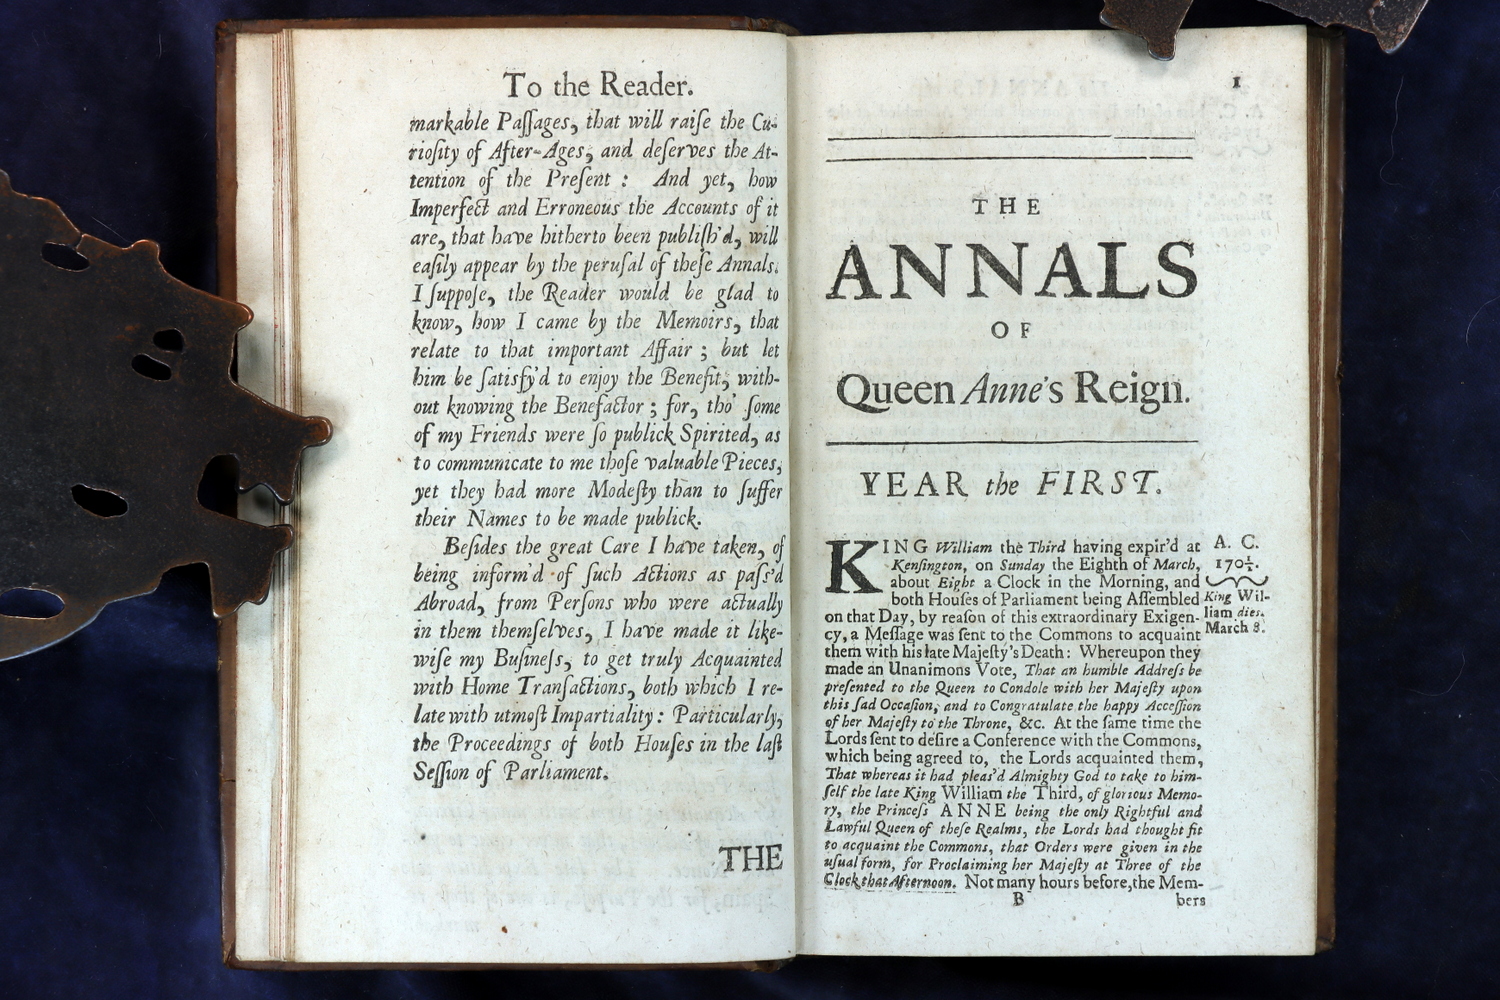 To the Reader.
markable Paſſages, that will raiſe the Cu-
rioſity of After-Ages, and deſerves the At-
tention of the Preſent : And yet, how
Imperfect and Erroneous the Accounts of it
are, that have hitherto been publiſh'd, will
eaſily appear by the peruſal of theſe Annals.
I ſuppoſe, the Reader would be glad to
know, how I came by the Memoirs, that
relate to that important Affair ; but let
him be ſatisfy'd to enjoy the Benefit, with-
out knowing the Benefactor ; for, tho' ſome
of my Friends were ſo publick Spirited, as
to communicate to me thoſe valuable Pieces,
yet they had more Modeſty than to ſuffer
their Names to be made publick.
Beſides the great Care I have taken, of
being inform'd of ſuch Actions as paſs'd
Abroad, from Perſons who were actually
in them themſelves, I have made it like-
wiſe my Buſineſs, to get truly Acquainted
with Home Tranſactions, both which I re-
late with utmoſt Impartiality : Particularly,
the Proceedings of both Houſes in the laſt
Seſſion of Parliament.
THE
1
THE
ANNALS
OF
Queen Anne's Reign.
YEAR the FIRST.
KING William the Third having expir'd at
Kenſington, on Sunday the Eighth of March,
about Eight a Clock in the Morning, and
both Houſes of Parliament being Aſſembled
on that Day, by reaſon of this extraordinary Exigen-
cy, a Meſſage was ſent to the Commons to acquaint
them with his late Majeſty's Death : Whereupon they
made an Unanimons Vote, That an humble Addreſs be
preſented to the Queen to Condole with her Majeſty upon
this ſad Occaſion, and to Congratulate the happy Acceſſion
of her Majeſty to the Throne, &c. At the ſame time the
Lords ſent to deſire a Conference with the Commons,
which being agreed to, the Lords acquainted them,
That whereas it had pleas'd Almighty God to take to him-
ſelf the late King William the Third, of glorious Memo-
ry, the Princeſs ANNE being the only Rightful and
Lawful Queen of theſe Realms, the Lords had thought fit
to acquaint the Commons, that Orders were given in the
uſual form, for Proclaiming her Majeſty at Three of the
Clock that Afternoon. Not many hours before, the Mem-
B bers
A. C.
170½.
King Wil-
liam dies.
March 8.